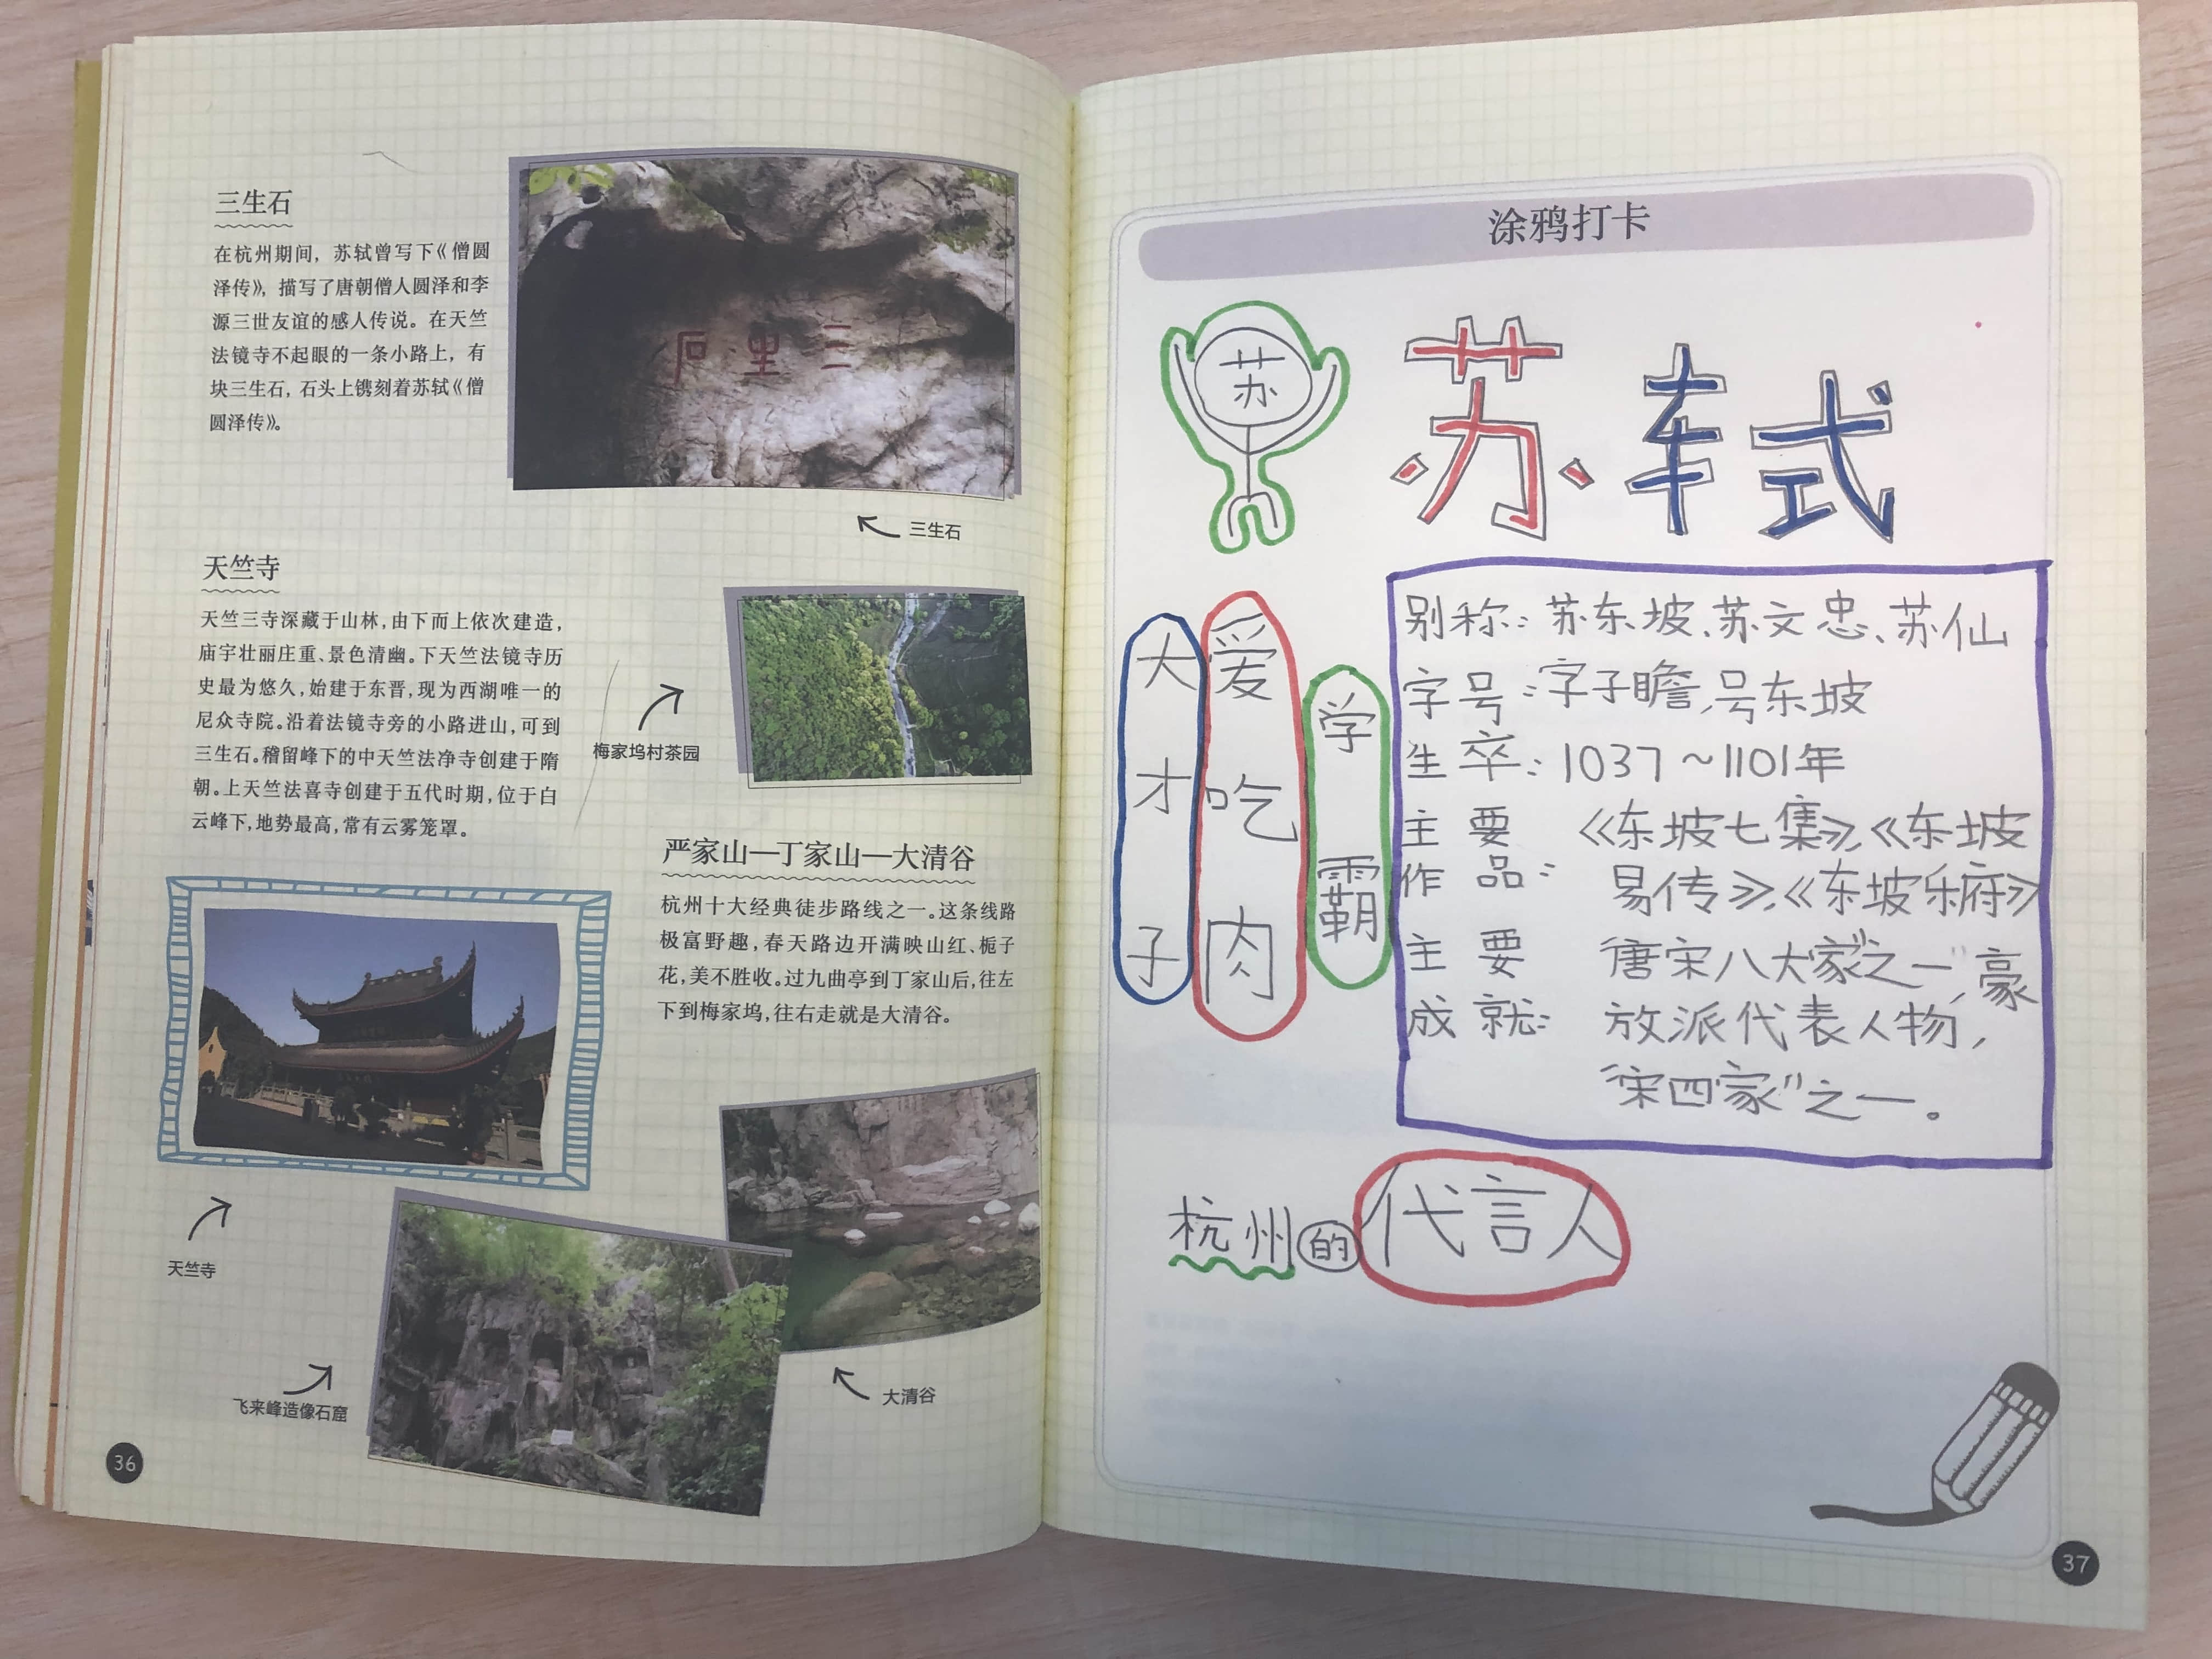 三生石
在杭州期间，苏轼曾写下《僧圆
泽传》，描写了唐朝僧人圆泽和李
源三世友谊的感人传说。在天竺
法镜寺不起眼的一条小路上，有
块三生石，石头上镌刻着苏轼《僧
圆泽传》。
三生石
天竺寺
天竺三寺深藏于山林，由下而上依次建造，
庙宇壮丽庄重、景色清幽。下天竺法镜寺历
史最为悠久，始建于东晋，现为西湖唯一的
尼众寺院。沿着法镜寺旁的小路进山，可到
三生石。稽留峰下的中天竺法净寺创建于隋
朝。上天竺法喜寺创建于五代时期，位于白
云峰下，地势最高，常有云雾笼罩。
梅家坞村茶园
严家山—丁家山—大清谷
杭州十大经典徒步路线之一。这条线路
极富野趣，春天路边开满映山红、栀子
花，美不胜收。过九曲亭到丁家山后，往左
下到梅家坞，往右走就是大清谷。
天竺寺
飞来峰造像石窟
大清谷
36
涂鸦打卡
苏
苏轼
大才子
爱吃肉
学霸
别称：苏东坡、苏文忠、苏仙
字号：字子瞻，号东坡
生卒：1037～1101年
主要 《东坡七集》，《东坡
作品： 易传》，《东坡乐府》
主要 唐宋八大家"之一"，豪
成就： 放派代表人物，
"宋四家"之一。
杭州的代言人
37